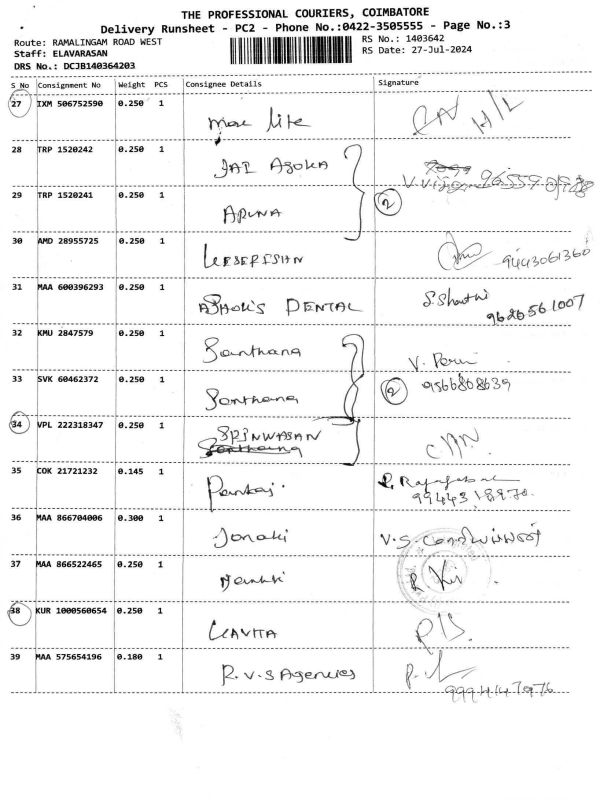 THE PROFESSIONAL COURIERS, COIMBATORE
Delivery Runsheet - PC2 - Phone No.:0422-3505555 - Page No.:3
Route: RAMALINGAM ROAD WEST
RS No.: 1403642
Staff: ELAVARASAN
RS Date: 27-Jul-2024
DRS No.: DCJB140364203
S No Consignment No Weight PCS Consignee Details Signature
27 IXM 506752590 0.250 1 Max lite H/L
28 TRP 1520242 0.250 1 JAI ASOKA
29 TRP 1520241 0.250 1 ARUNA 2
30 AMD 28955725 0.250 1 9443061360
31 MAA 600396293 0.250 1 ASHOK'S DENTAL S. Shanthi
9626561007
32 KMU 2847579 0.250 1 Santhana
33 SVK 60462372 0.250 1 Santhana 2 9566868639
34 VPL 222318347 0.250 1 SRINWASAN
35 COK 21721232 0.145 1 Pankaj
36 MAA 866704006 0.300 1 Janaki
37 MAA 866522465 0.250 1
38 KUR 1000560654 0.250 1 KAVITA
39 MAA 575654196 0.180 1 R.V.S Agencies
9994147976